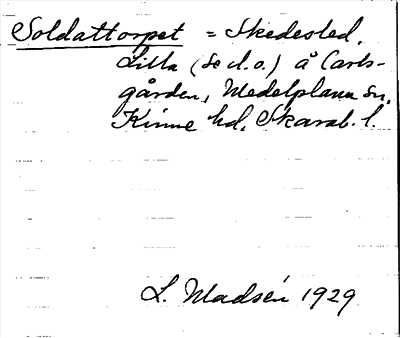 Soldattorpet = Skedesled,
Lilla (se d.o.) å Carls-
gården, Medelplana sn.
Kinne hd. Skarab. l.
L. Madsén 1929